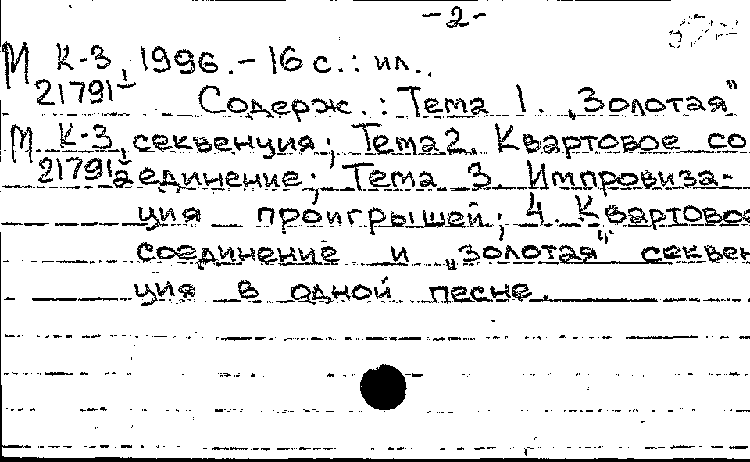 -2-
М К-3, 1996. - 16 с.: ил..
21791
Содерж.: Тема 1. „Золотая"
М К-3, секвенция; Тема 2. Квартовое со
21791 единение; Тема 3. Импровиза-
ция проигрышей; 4. Квартовое
соединение и „золотая" секвен
ция в одной песне.